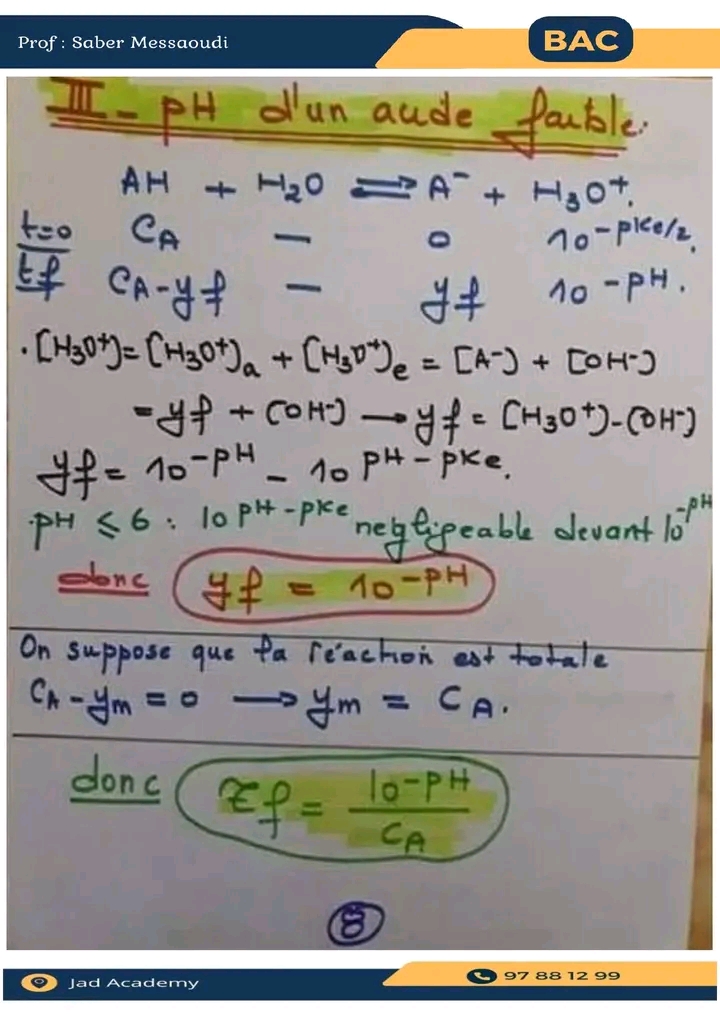 Prof : Saber Messaoudi
BAC
III - pH d'un acide faible.
AH + H₂O ⇌ A⁻ + H₃O⁺.
t=0 CA — 0 10^-pKe/2.
tf CA-yf — yf 10^-pH.
. [H₃O⁺]=[H₃O⁺]a + [H₃O⁺]e = [A⁻] + [OH⁻]
= yf + [OH⁻] → yf = [H₃O⁺]-[OH⁻]
yf = 10^-pH - 10^pH-pKe.
.pH ⩽ 6 : 10^pH-pKe negligeable devant 10^-pH
donc yf = 10^-pH
On suppose que la réaction est totale
CA - ym = 0 → ym = CA.
donc τf = 10^-pH / CA
8
Jad Academy
97 88 12 99